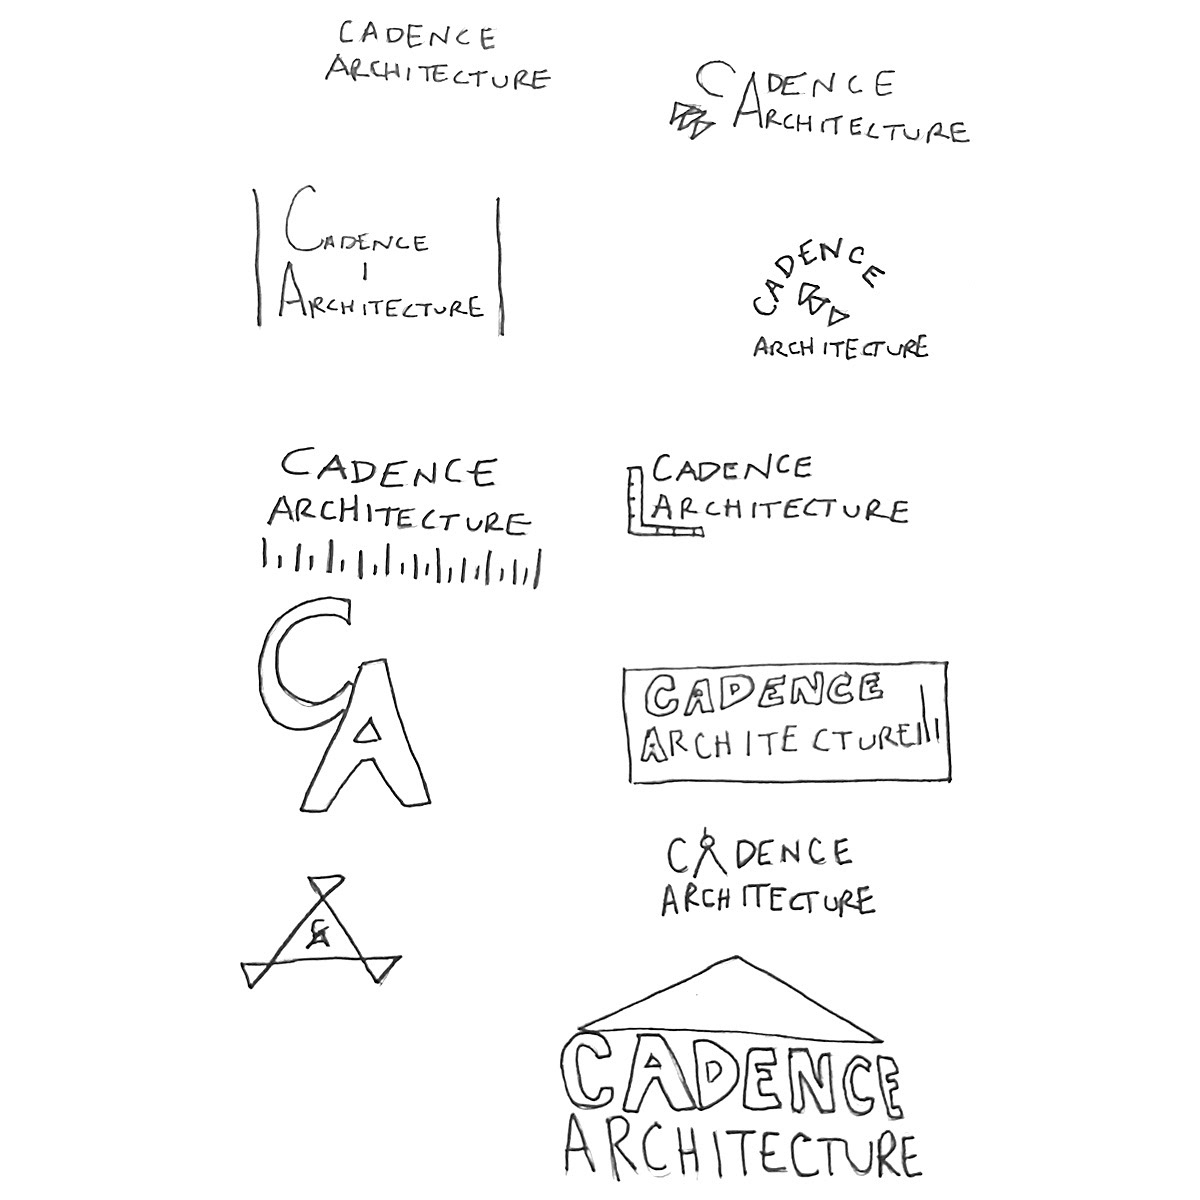 CADENCE
ARCHITECTURE
CADENCE
ARCHITECTURE
CADENCE
ARCHITECTURE
CADENCE
ARCHITECTURE
CADENCE
ARCHITECTURE
CADENCE
ARCHITECTURE
CA
CADENCE
ARCHITECTURE
CADENCE
ARCHITECTURE
CA
CADENCE
ARCHITECTURE